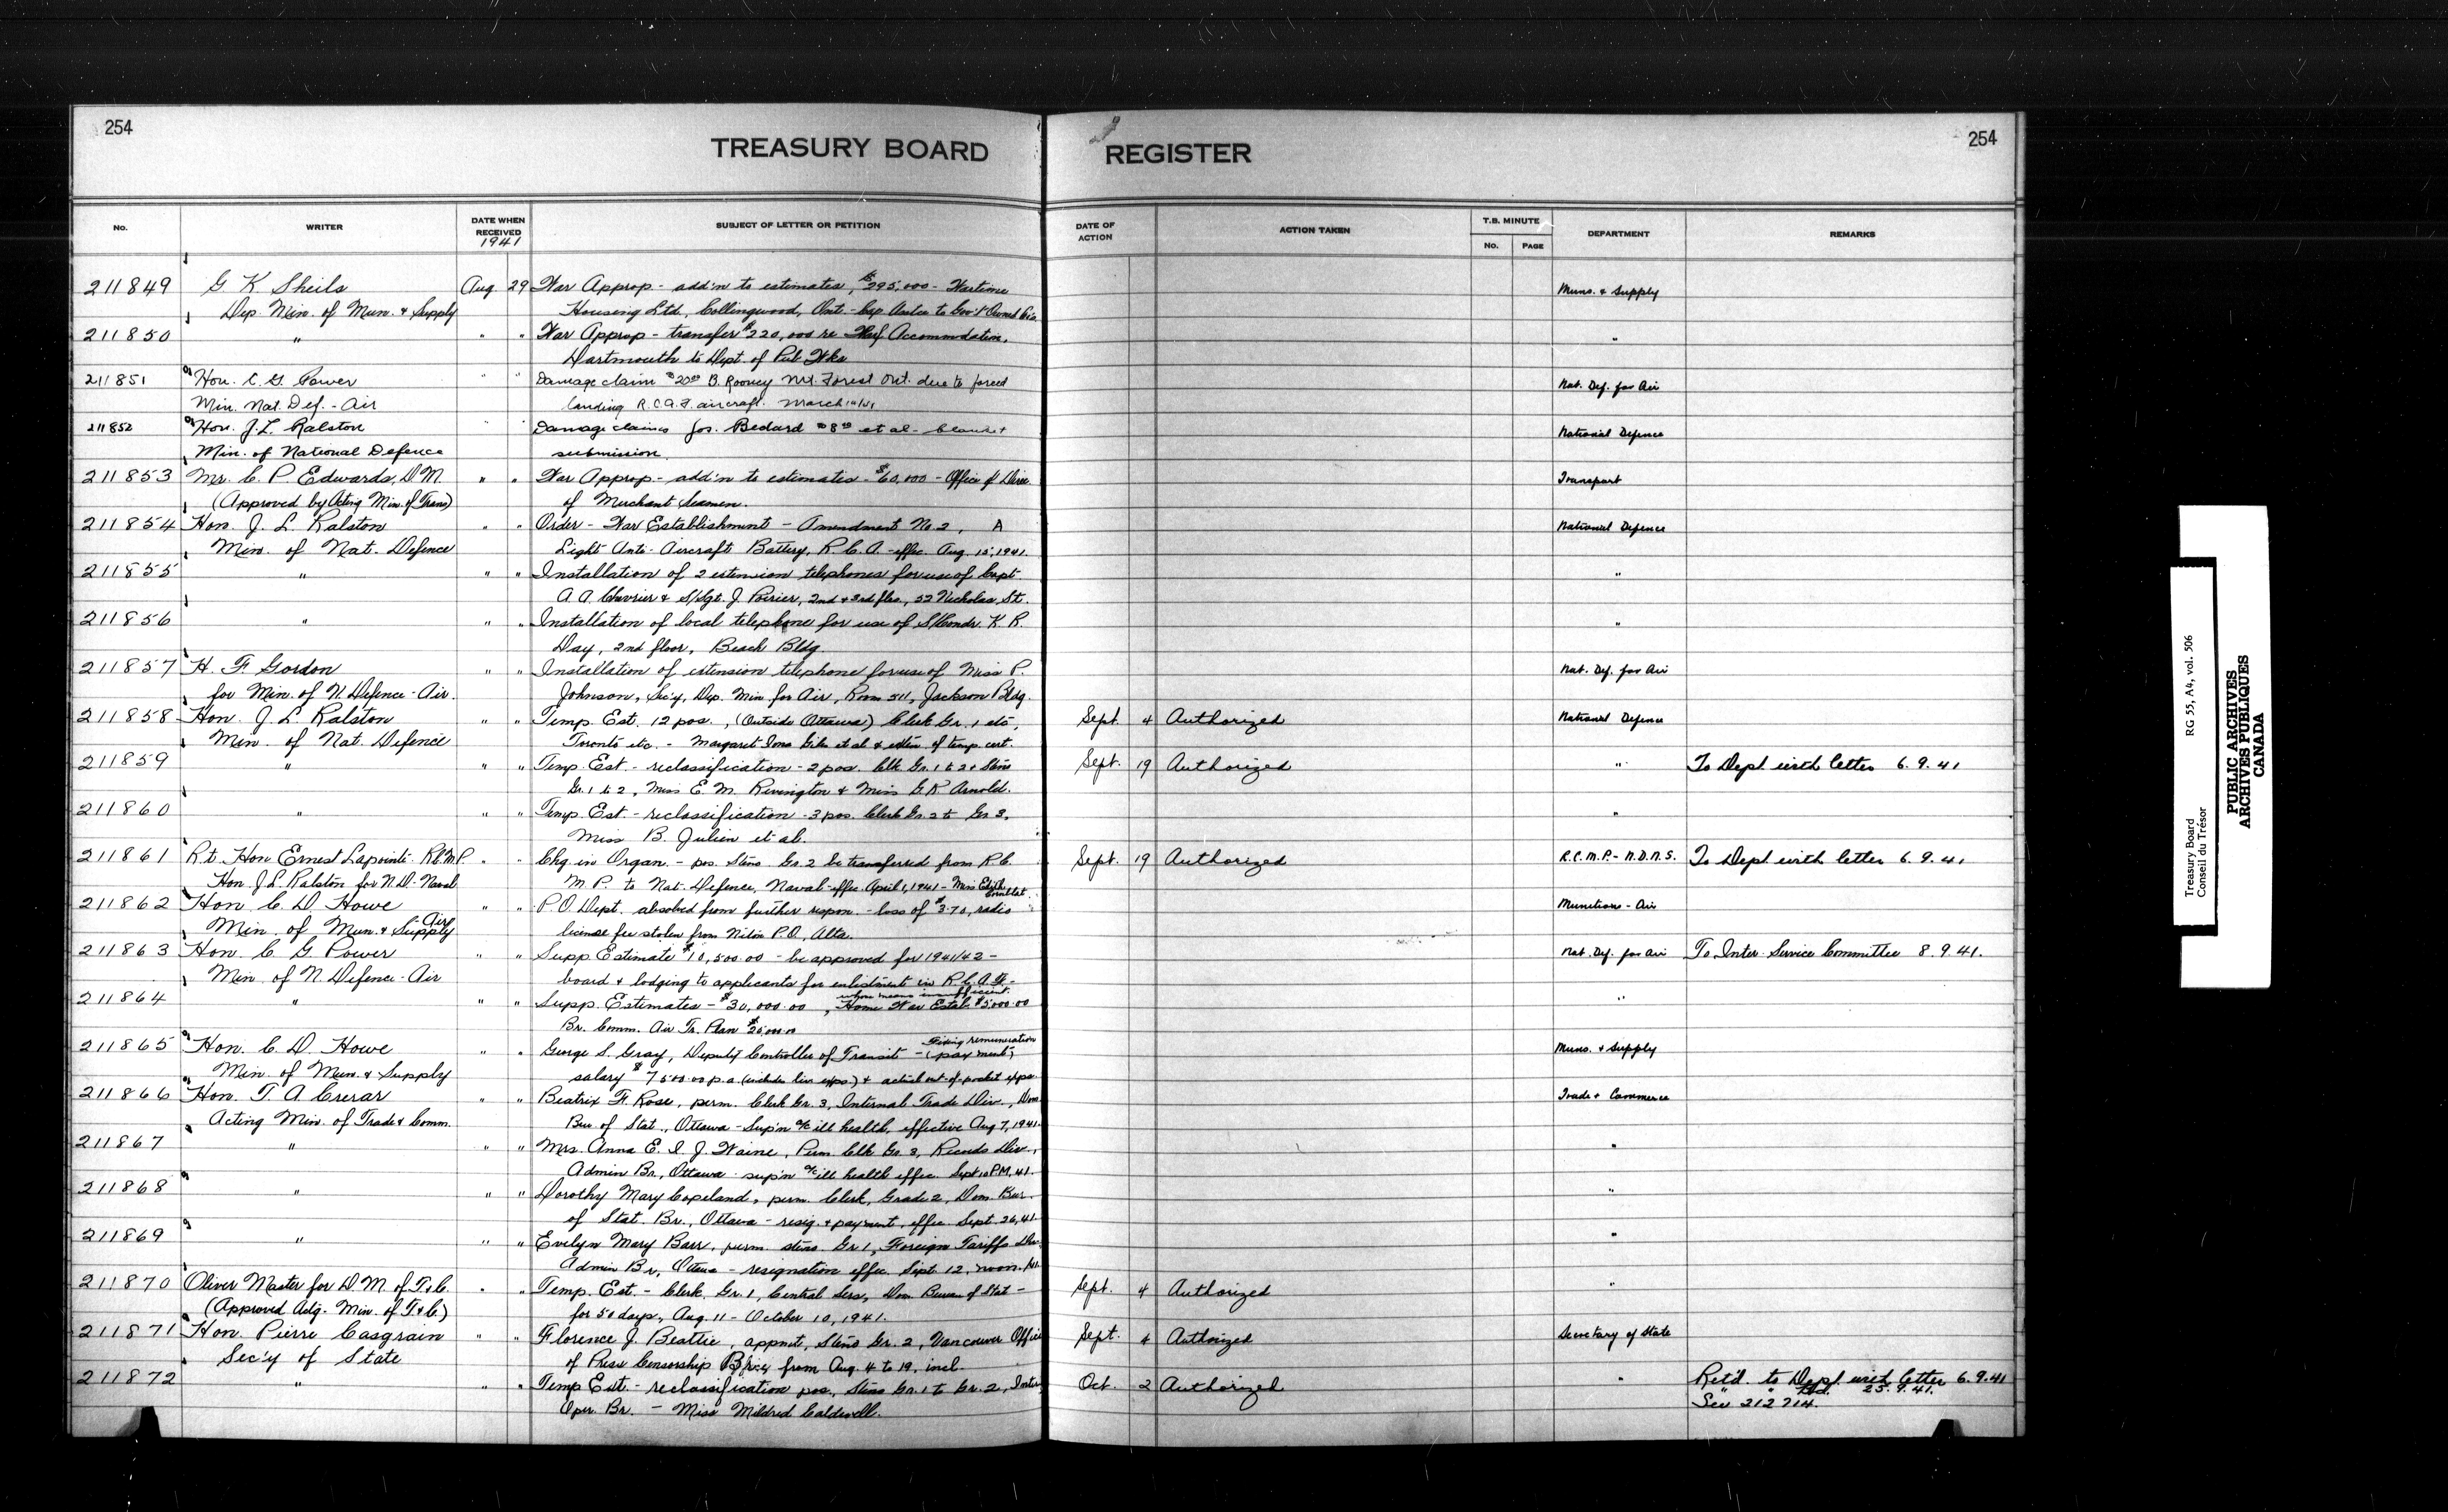 254
TREASURY BOARD
REGISTER
254
No.
WRITER
DATE WHEN RECEIVED
1941
SUBJECT OF LETTER OR PETITION
DATE OF ACTION
ACTION TAKEN
T.B. MINUTE
No.
PAGE
DEPARTMENT
REMARKS
211849 G K Sheils Aug. 29 War Approp - add'n to estimates, $295,000 - Wartime Muns. & Supply
Dep. Min. of Mun. & Supply Housing Ltd., Collingwood, Ont. - Cap. to Gov't Owned
211850 " " " War Approp - transfer $220,000 re Accommodation, "
Dartmouth to Dept. of Pub Wks
211851 Hon. C. G. Power " " Damage claim $20.00 B. Rooney Mt. Forest Ont. due to forced Nat. Def. for Air
Min. Nat. Def. - Air landing R.C.A.F. aircraft. March
211852 Hon. J.L. Ralston " " Damage claims Jos. Bedard et al - blanket National Defence
Min. of National Defence submission.
211853 Mr. C. P. Edwards, D.M. " " War Approp - add'n to estimates - $60,000 - Office of Direc. Transport
(Approved by Acting Min. of Trans) of Merchant Seamen.
211854 Hon. J. L. Ralston " " Order - War Establishment - Amendment No. 2, A National Defence
Min. of Nat. Defence Light Anti-Aircraft Battery, R.C.A. - effec. Aug. 15, 1941.
211855 " " " Installation of 2 extension telephones for use of Capt "
A. A. Chevrier & S/Sgt. J. Poirier, 2nd & 3rd flrs., 52 Nicholas St.
211856 " " " Installation of local telephone for use of S/Comdr. K. R. "
Day, 2nd floor, Beach Bldg.
211857 H. F. Gordon " " Installation of extension telephone for use of Miss P. Nat. Def. for Air
for Min. of N. Defence - Air. Johnson, Sec'y, Dep. Min for Air, Room 511, Jackson Bldg.
211858 Hon. J. L. Ralston " " Temp. Est. 12 pos., (Outside Ottawa) Clerk Gr. 1 etc, Sept. 4 Authorized National Defence
Min. of Nat. Defence Toronto etc. - Margaret Iona et al & exten of temp. cert.
211859 " " " Temp. Est. - reclassification - 2 pos. Clk Gr. 1 to 2 & Steno Sept. 19 Authorized " To Dept. with letter 6.9.41
Gr. 1 to 2, Miss E. M. Rivington & Miss G. K. Arnold.
211860 " " " Temp. Est. - reclassification - 3 pos. Clerk Gr. 2 to Gr 3, "
Miss B. Julien et al.
211861 Rt. Hon Ernest Lapointe - R.C.M.P. " " Chg. in Organ. - pos. Steno Gr. 2 be transferred from R.C. Sept. 19 Authorized R.C.M.P. - N.D.N.S. To Dept. with letter 6.9.41
Hon. J.L. Ralston for N.D. - Naval M.P. to Nat. Defence, Naval - effec. April 1, 1941 - Miss Edith
211862 Hon. C. D. Howe " " P.O. Dept. absolved from further respon. - loss of $3.70, radio Munitions - Air
Min. of Mun. & Supply Air license fee stolen from P.O., Alta.
211863 Hon. C. G. Power " " Supp. Estimate $10,500.00 - be approved for 1941/42 - Nat. Def. for Air To Inter-Service Committee 8.9.41.
Min. of N. Defence - Air board & lodging to applicants for enlistment in R.C.A.F. -
whose means insufficient.
211864 " " " Supp. Estimates - $30,000.00, Home War Estab. $5000.00 "
Br. Comm. Air Tr. Plan $25,000.00
211865 Hon. C. D. Howe " " George S. Gray, Deputy Controller of Transit - Fixing remuneration (payment) Muns. & Supply
Min. of Mun. & Supply salary $7500.00 p.a. (includes liv. exps.) & actual out-of-pocket exps.
211866 Hon. T. A. Crerar " " Beatrix F. Rose, perm. Clerk Gr. 3, Internal Trade Div., Dom. Trade & Commerce
Acting Min. of Trade & Comm. Bur. of Stat., Ottawa - Sup'n a/c ill health, effective Aug 7, 1941.
211867 " " " Mrs. Anna E. I. J. Waine, Perm Clk Gr 3, Records Div., "
Admin Br., Ottawa - sup'n a/c ill health effec. Sept 10 P.M, 41.
211868 " " " Dorothy Mary Copeland, perm. Clerk, Grade 2, Dom. Bur. "
of Stat. Br., Ottawa - resig. & payment, effec. Sept. 26, 41.
211869 " " " Evelyn Mary Barr, perm steno Gr 1, Foreign Tariffs Div. "
Admin Br., Ottawa - resignation effec. Sept. 12, noon.
211870 Oliver Master for D.M. of T. & C. " " Temp. Est. - Clerk, Gr. 1, Central Serv., Dom. Bureau of Stat - Sept. 4 Authorized "
(Approved Actg. Min. of T. & C.) for 50 days, Aug. 11 - October 10, 1941.
211871 Hon. Pierre Casgrain " " Florence J. Beattie, appmt, Steno Gr. 2, Vancouver Office Sept. 4 Authorized Secretary of State
Sec'y of State of Press Censorship from Aug. 4 to 19, incl.
211872 " " " Temp Est. - reclassification pos, Steno Gr. 1 to Gr. 2, Oct. 2 Authorized " Ret'd. to Dept. with letter 6.9.41
Oper. Br. - Miss Mildred Caldwell. 25.9.41.
See 212714.
Treasury Board
Conseil du Trésor
RG 55, A4, vol. 506
PUBLIC ARCHIVES
ARCHIVES PUBLIQUES
CANADA